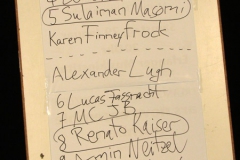 5 Sulaiman Masomi
Karen Finneyfrock
Alexander Lugh
6 Lucas Fassnacht
7 MC 5B
8 Renato Kaiser
9 Armin Neitzel